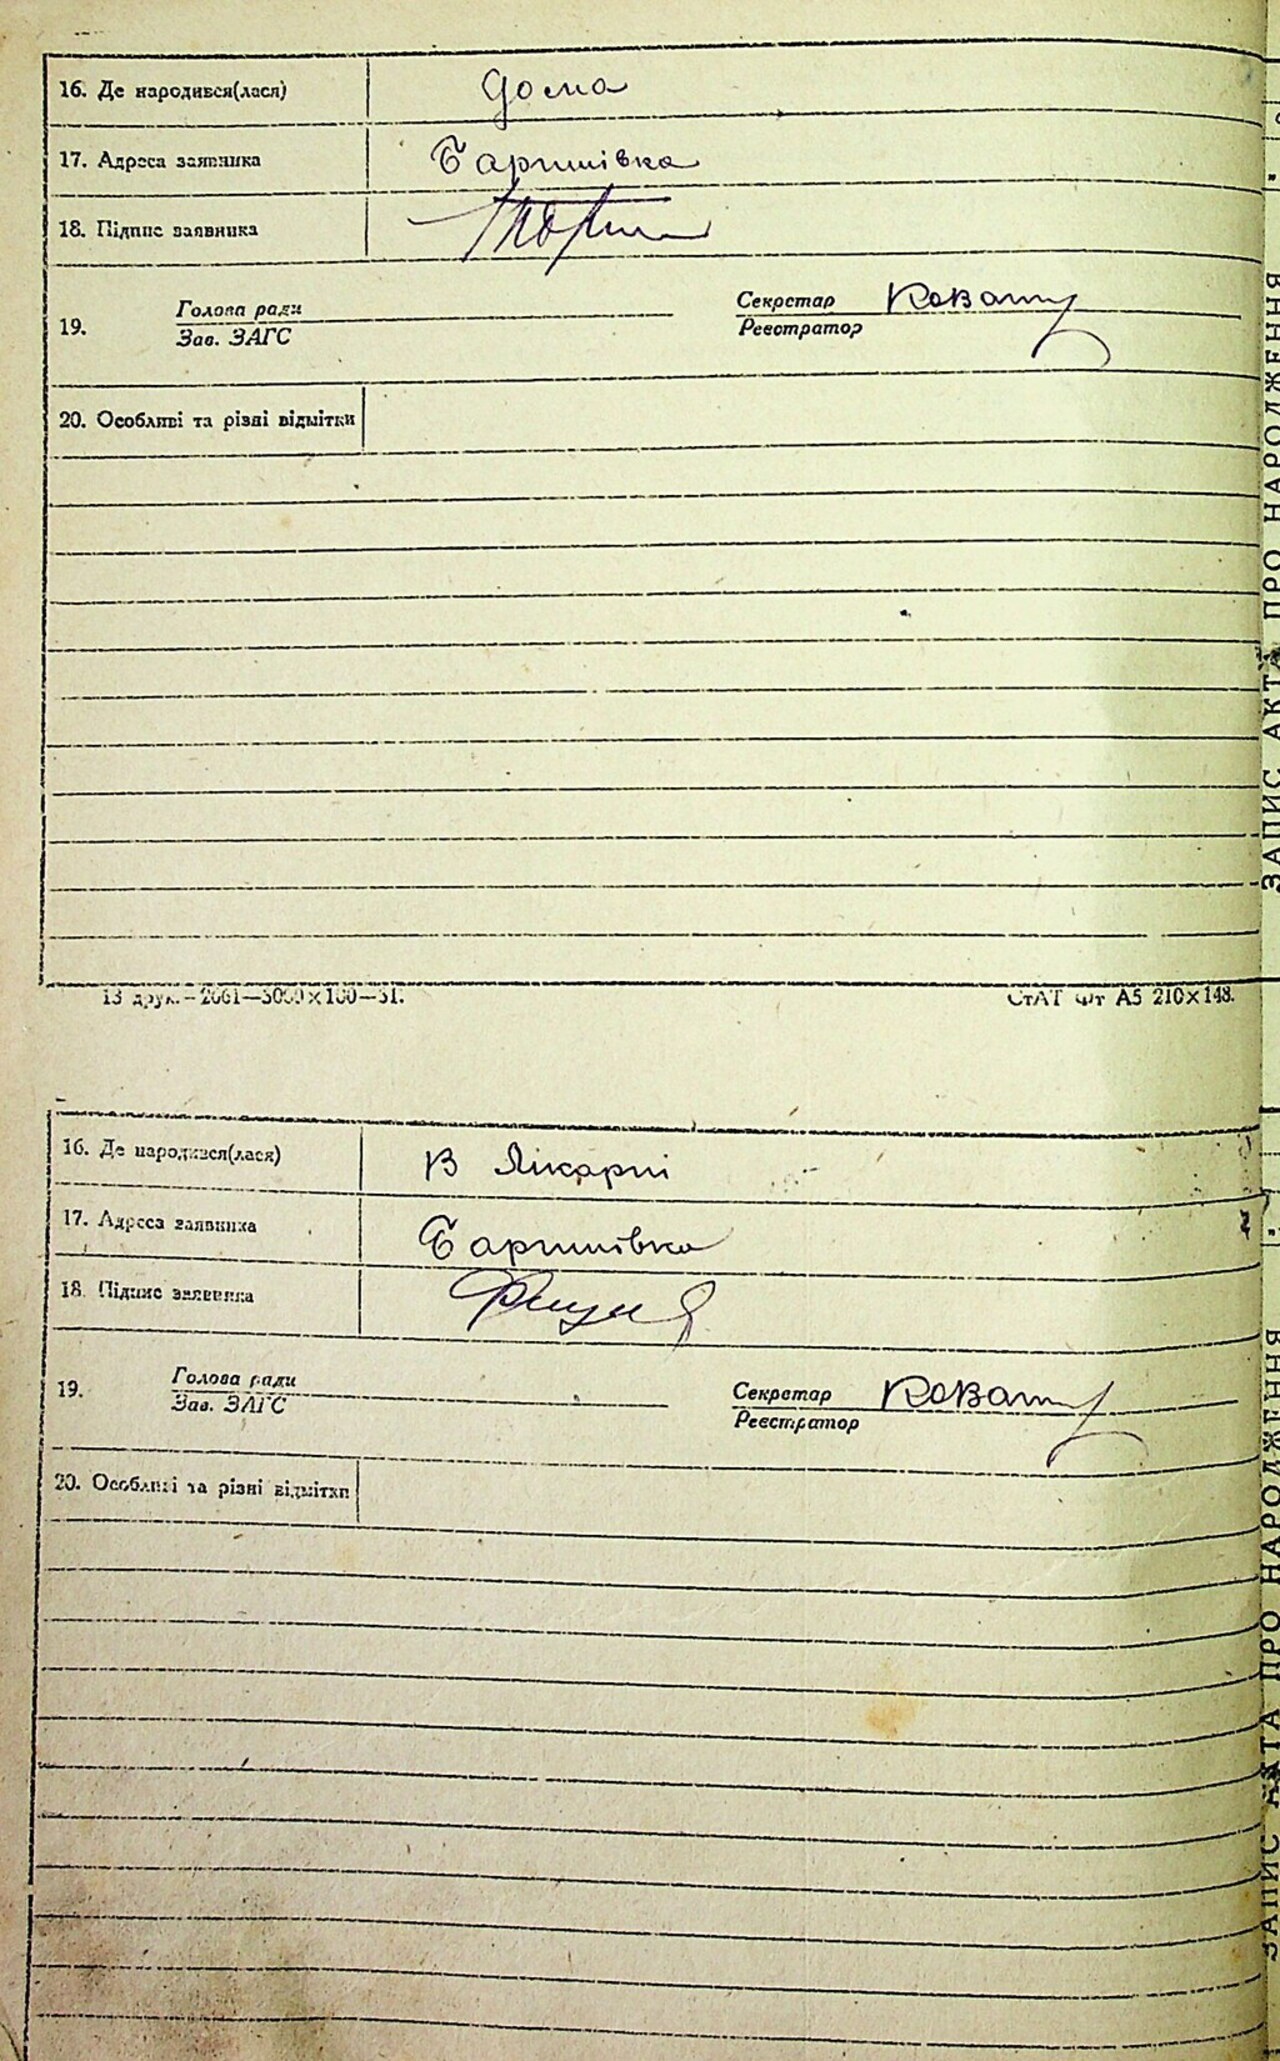 16. Де народився(лася) дома
17. Адреса заявника Баришівка
18. Підпис заявника
19. Голова ради Секретар
Зав. ЗАГС Реєстратор
20. Особливі та різні відмітки
13 друк.–2661—5000×100—51. СтАТ Фт А5 210×148.
16. Де народився(лася) В лікарні
17. Адреса заявника Баришівка
18. Підпис заявника
19. Голова ради Секретар
Зав. ЗАГС Реєстратор
20. Особливі та різні відмітки
ЗАПИС АКТА ПРО НАРОДЖЕННЯ
ЗАПИС АКТА ПРО НАРОДЖЕННЯ